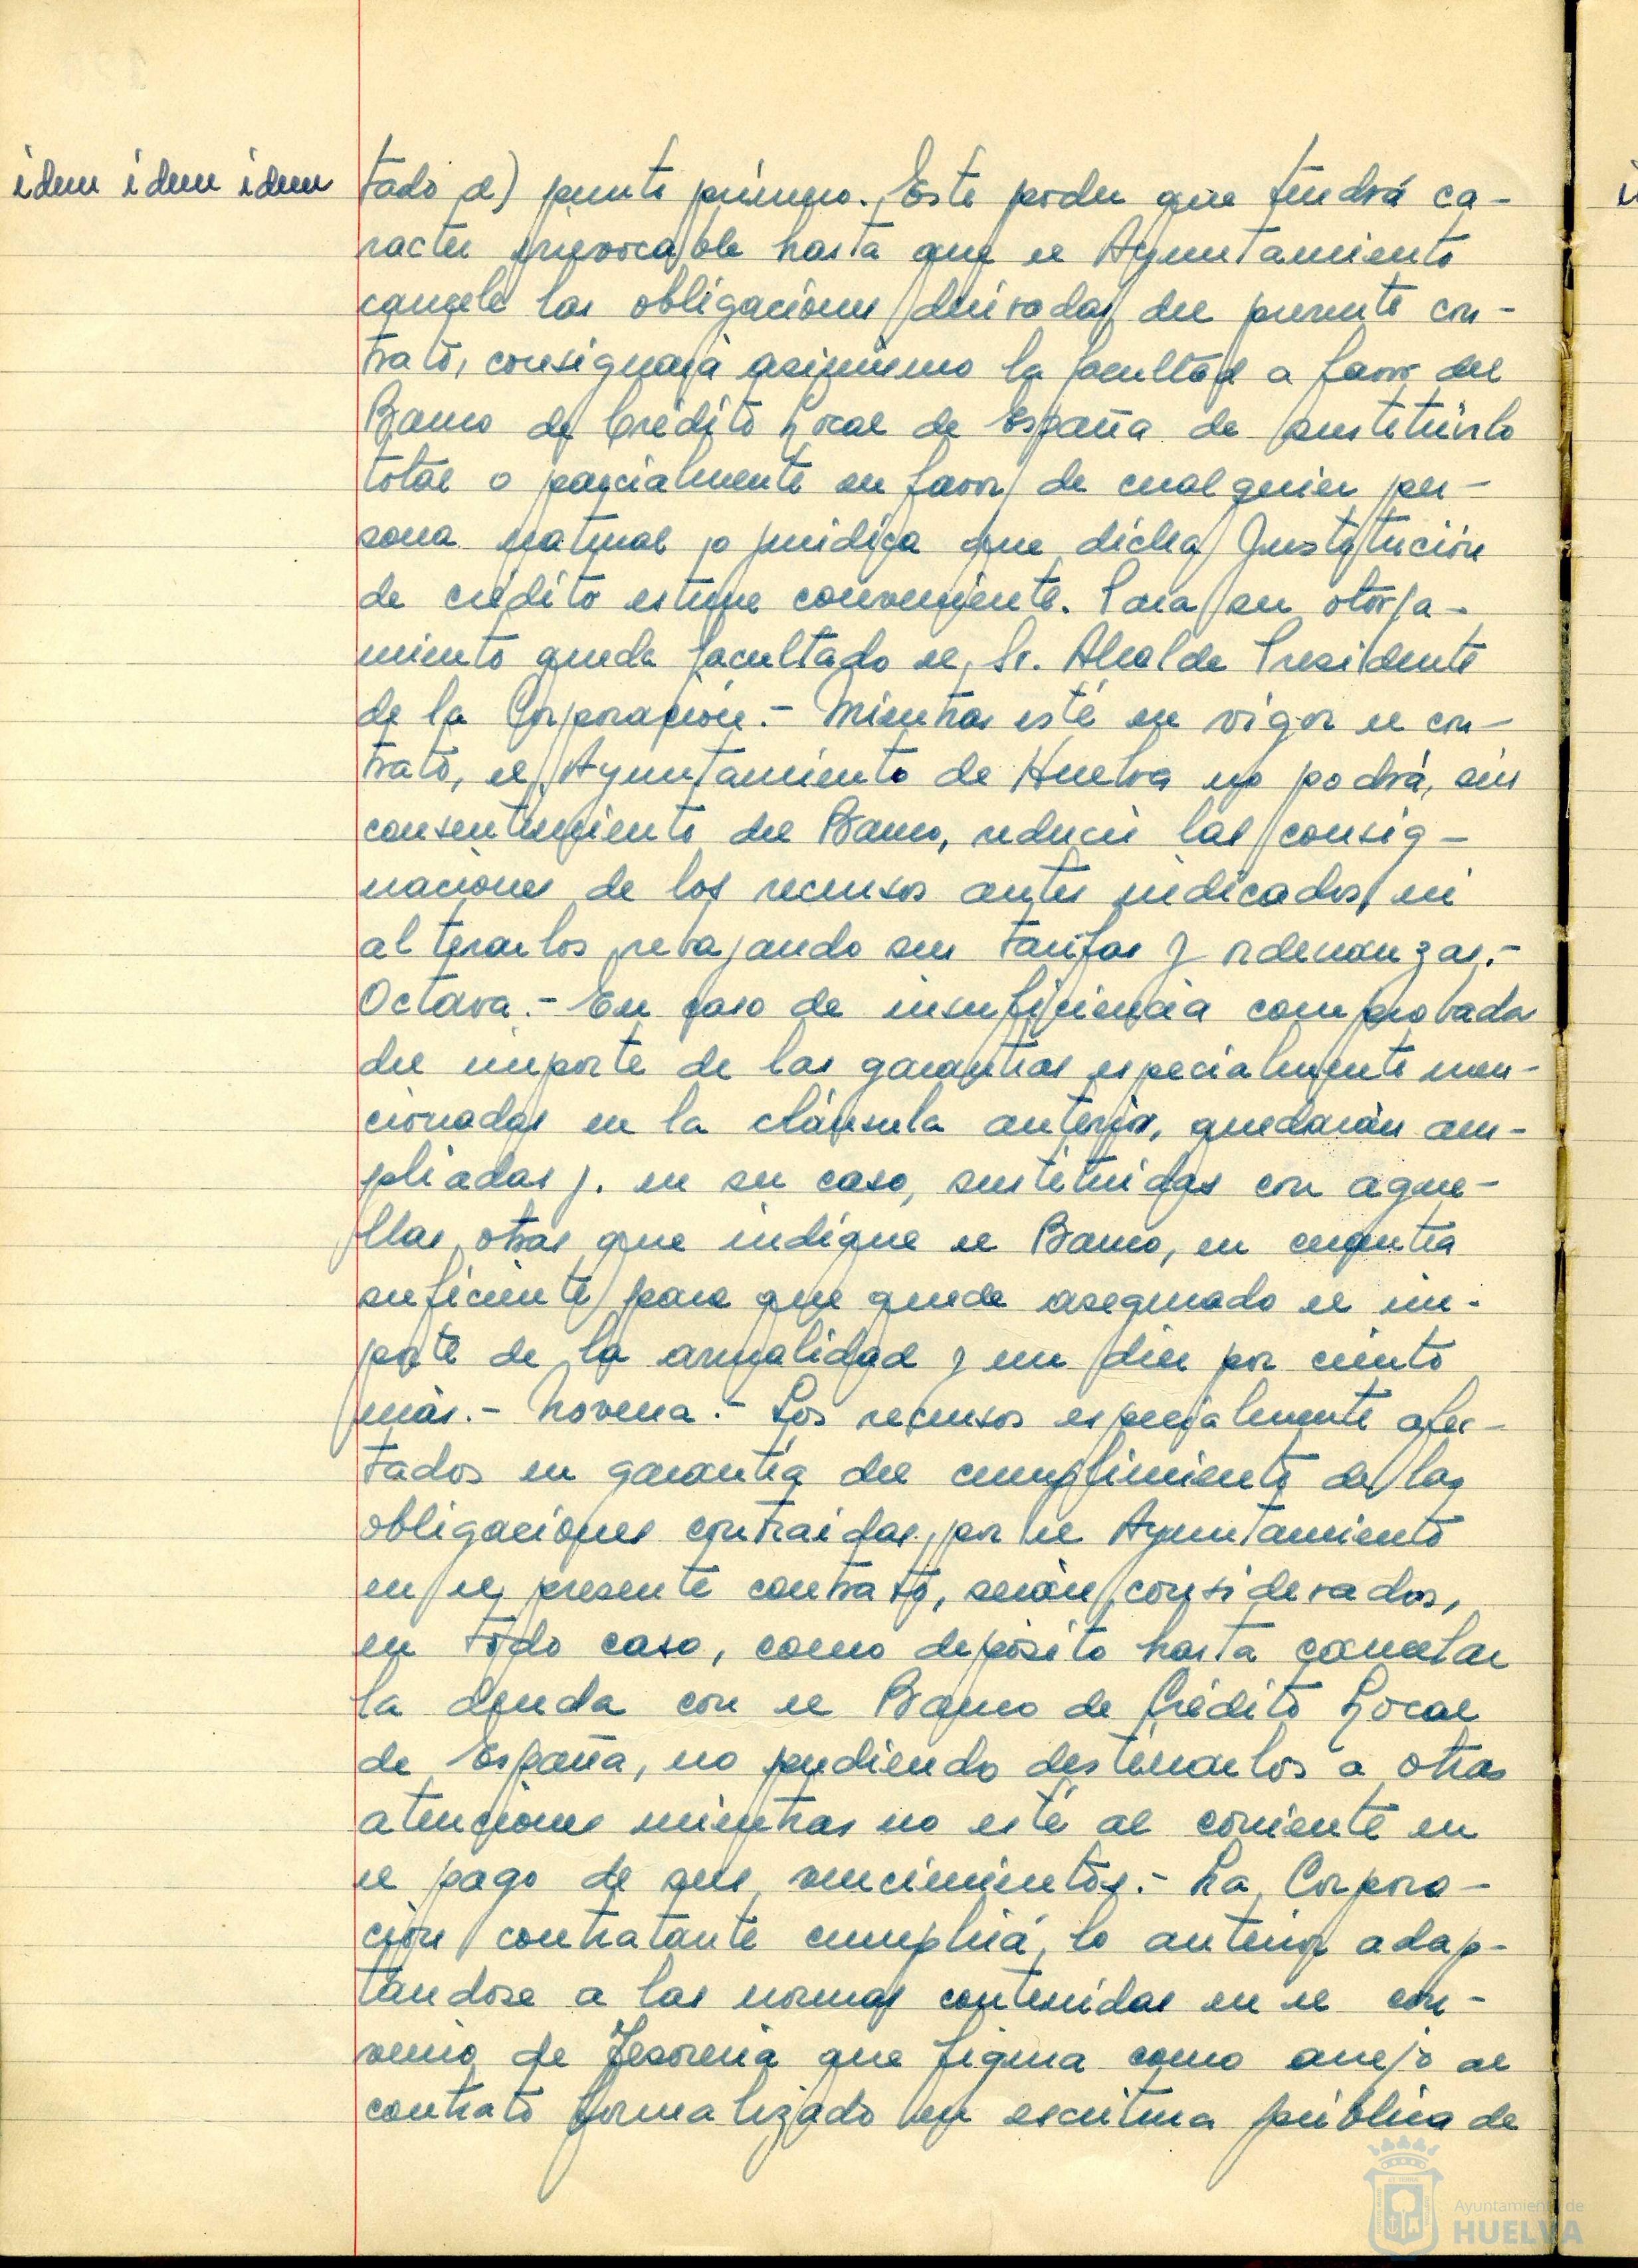 idem idem idem
tado d) punto primero. Este poder que tendrá ca-
racter irrevocable hasta que el Ayuntamiento
cancele las obligaciones derivadas del presente con-
trato, consignará asimismo la facultad a favor del
Banco de Crédito Local de España de sustituirlo
total o parcialmente en favor de cualquier per-
sona natural o juridica que dicha Institución
de crédito estime conveniente. Para su otorga-
miento queda facultado el Sr. Alcalde Presidente
de la Corporación.- Mientras esté en vigor el con-
trato, el Ayuntamiento de Huelva no podrá, sin
consentimiento del Banco, reducir las consig-
naciones de los recursos antes indicados, ni
alterarlos rebajando sus tarifas y ordenanzas.-
Octava.- En caso de insuficiencia comprobada
del importe de las garantias especialmente men-
cionadas en la cláusula anterior, quedarán am-
pliadas y. en su caso, sustituidas con aque-
llas otras que indique el Banco, en cuantia
suficiente para que quede asegurado el im-
porte de la anualidad y un diez por ciento
más.- Novena.- Los recursos especialmente afec-
tados en garantía del cumplimiento de las
obligaciones contraidas por el Ayuntamiento
en el presente contrato, serán considerados,
en todo caso, como depósito hasta cancelar
la deuda con el Banco de Crédito Local
de España, no pudiendo destinarlos a otras
atenciones mientras no esté al corriente en
el pago de sus vencimientos.- La Corpora-
ción contratante cumplirá lo anterior adap-
tandose a las normas contenidas en el con-
venio de Tesoreria que figura como anejo al
contrato formalizado en escritura pública de
Ayuntamiento de
HUELVA